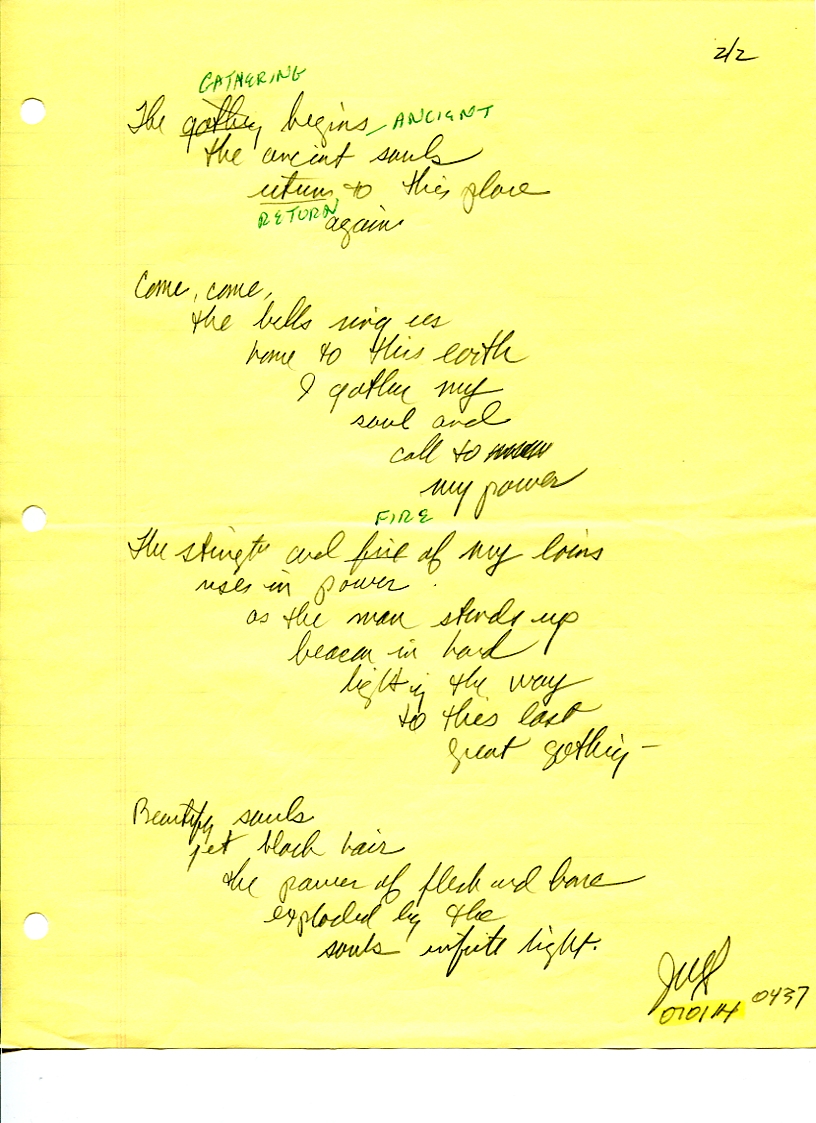 2/2
GATHERING
The gathering begins ANCIENT
the ancient souls
return to this place
RETURN again
Come, come,
the bells ring us
home to this earth
I gather my
soul and
call to
my power
FIRE
The strength and fire of my loins
rises in power
as the man stands up
beacon in hand
lighting the way
to this last
great gathering —
Beautiful souls
jet black hair
the power of flesh and bone
exploded by the
souls infinite light.
070114 0437